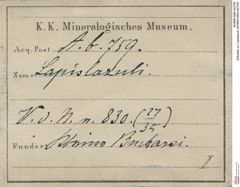 K. K. Mineralogisches Museum.
Acq. Post A. b. 759.
Name Lapislazuli.
V. d. N. n. 830. (27/35)
Fundort Bucharei.
I